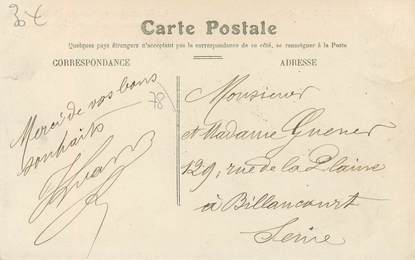 30 €
Carte Postale
Quelques pays étrangers n'acceptant pas la correspondance de ce côté, se renseigner à la Poste
CORRESPONDANCE
ADRESSE
Merci de vos bons
souhaits
78
Monsieur
et Madame Guener
129, rue de la Plaine
à Billancourt
Seine